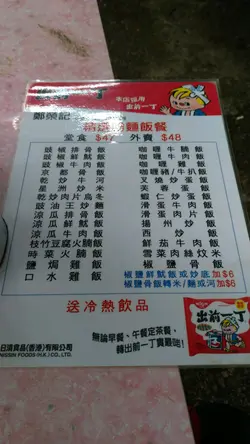 本店採用
出前一丁
鄭榮記
粉麵飯餐
堂食 $47 外賣 $48
豉椒排骨飯
豉椒鮮魷飯
京都骨飯
乾炒牛河
星洲炒米
乾炒肉片烏冬
豉油王炒麵
涼瓜排骨飯
涼瓜魚飯
涼瓜牛肉飯
枝竹豆腐火腩飯
時菜火腩飯
鹽焗雞飯
口水雞飯
咖喱牛腩飯
咖喱牛肉飯
咖喱雞飯
咖喱豬/牛扒飯
叉燒炒蛋飯
芙蓉蛋飯
蝦仁炒蛋飯
滑蛋牛肉飯
滑蛋蝦仁飯
揚州炒飯
西炒飯
鮮茄牛肉飯
雪菜肉絲炆米
椒鹽骨飯
椒鹽鮮魷飯或炒底加$6
椒鹽骨飯轉米/麵或河加$6
送冷熱飲品
無論早餐、午餐定茶餐,
轉出前一丁貴親啲!
NISSIN
出前一丁
日清食品(香港)有限公司
NISSIN FOODS (H.K.) CO., LTD.